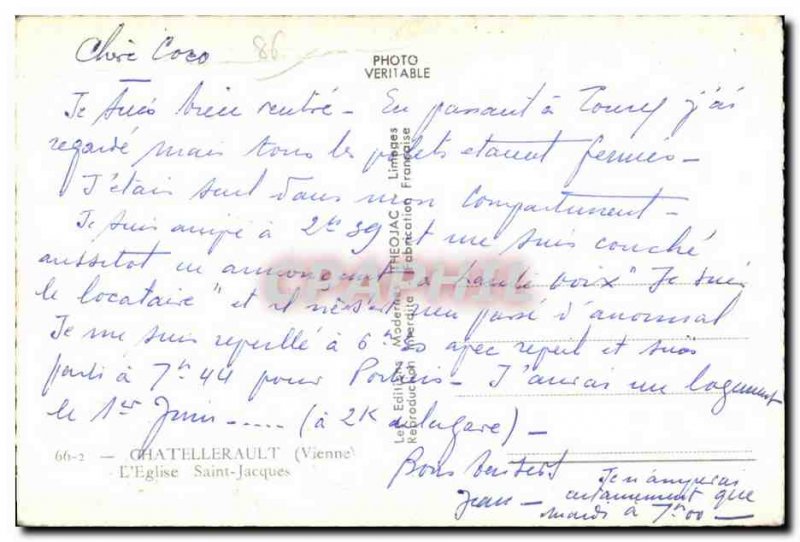 Chère Coco
86
PHOTO
VERITABLE
Je suis bien rentré - En passant à Tours j'ai
regardé mais tous les volets etaient fermés -
J'étais seul dans mon compartiment -
Je suis arrivé à 2h 39 et me suis couché
aussitot en annonçant "à haute voix" Je suis
le locataire" et il n'est rien passé d'anormal
Je me suis reveillé à 6h avec reveil et suis
parti à 7h 44 pour Poitiers - J'aurai un logement
le 1er Juin ..... (à 2K de la gare) -
Bons baisers
Jean -
Je n'arriverai
certainement que
mardi à 7h00 -
Les Editions Modernes THEOJAC - Limoges
Reproduction Interdite Fabrication Française
66-2 - CHATELLERAULT (Vienne)
L'Eglise Saint-Jacques
CPARPHIL